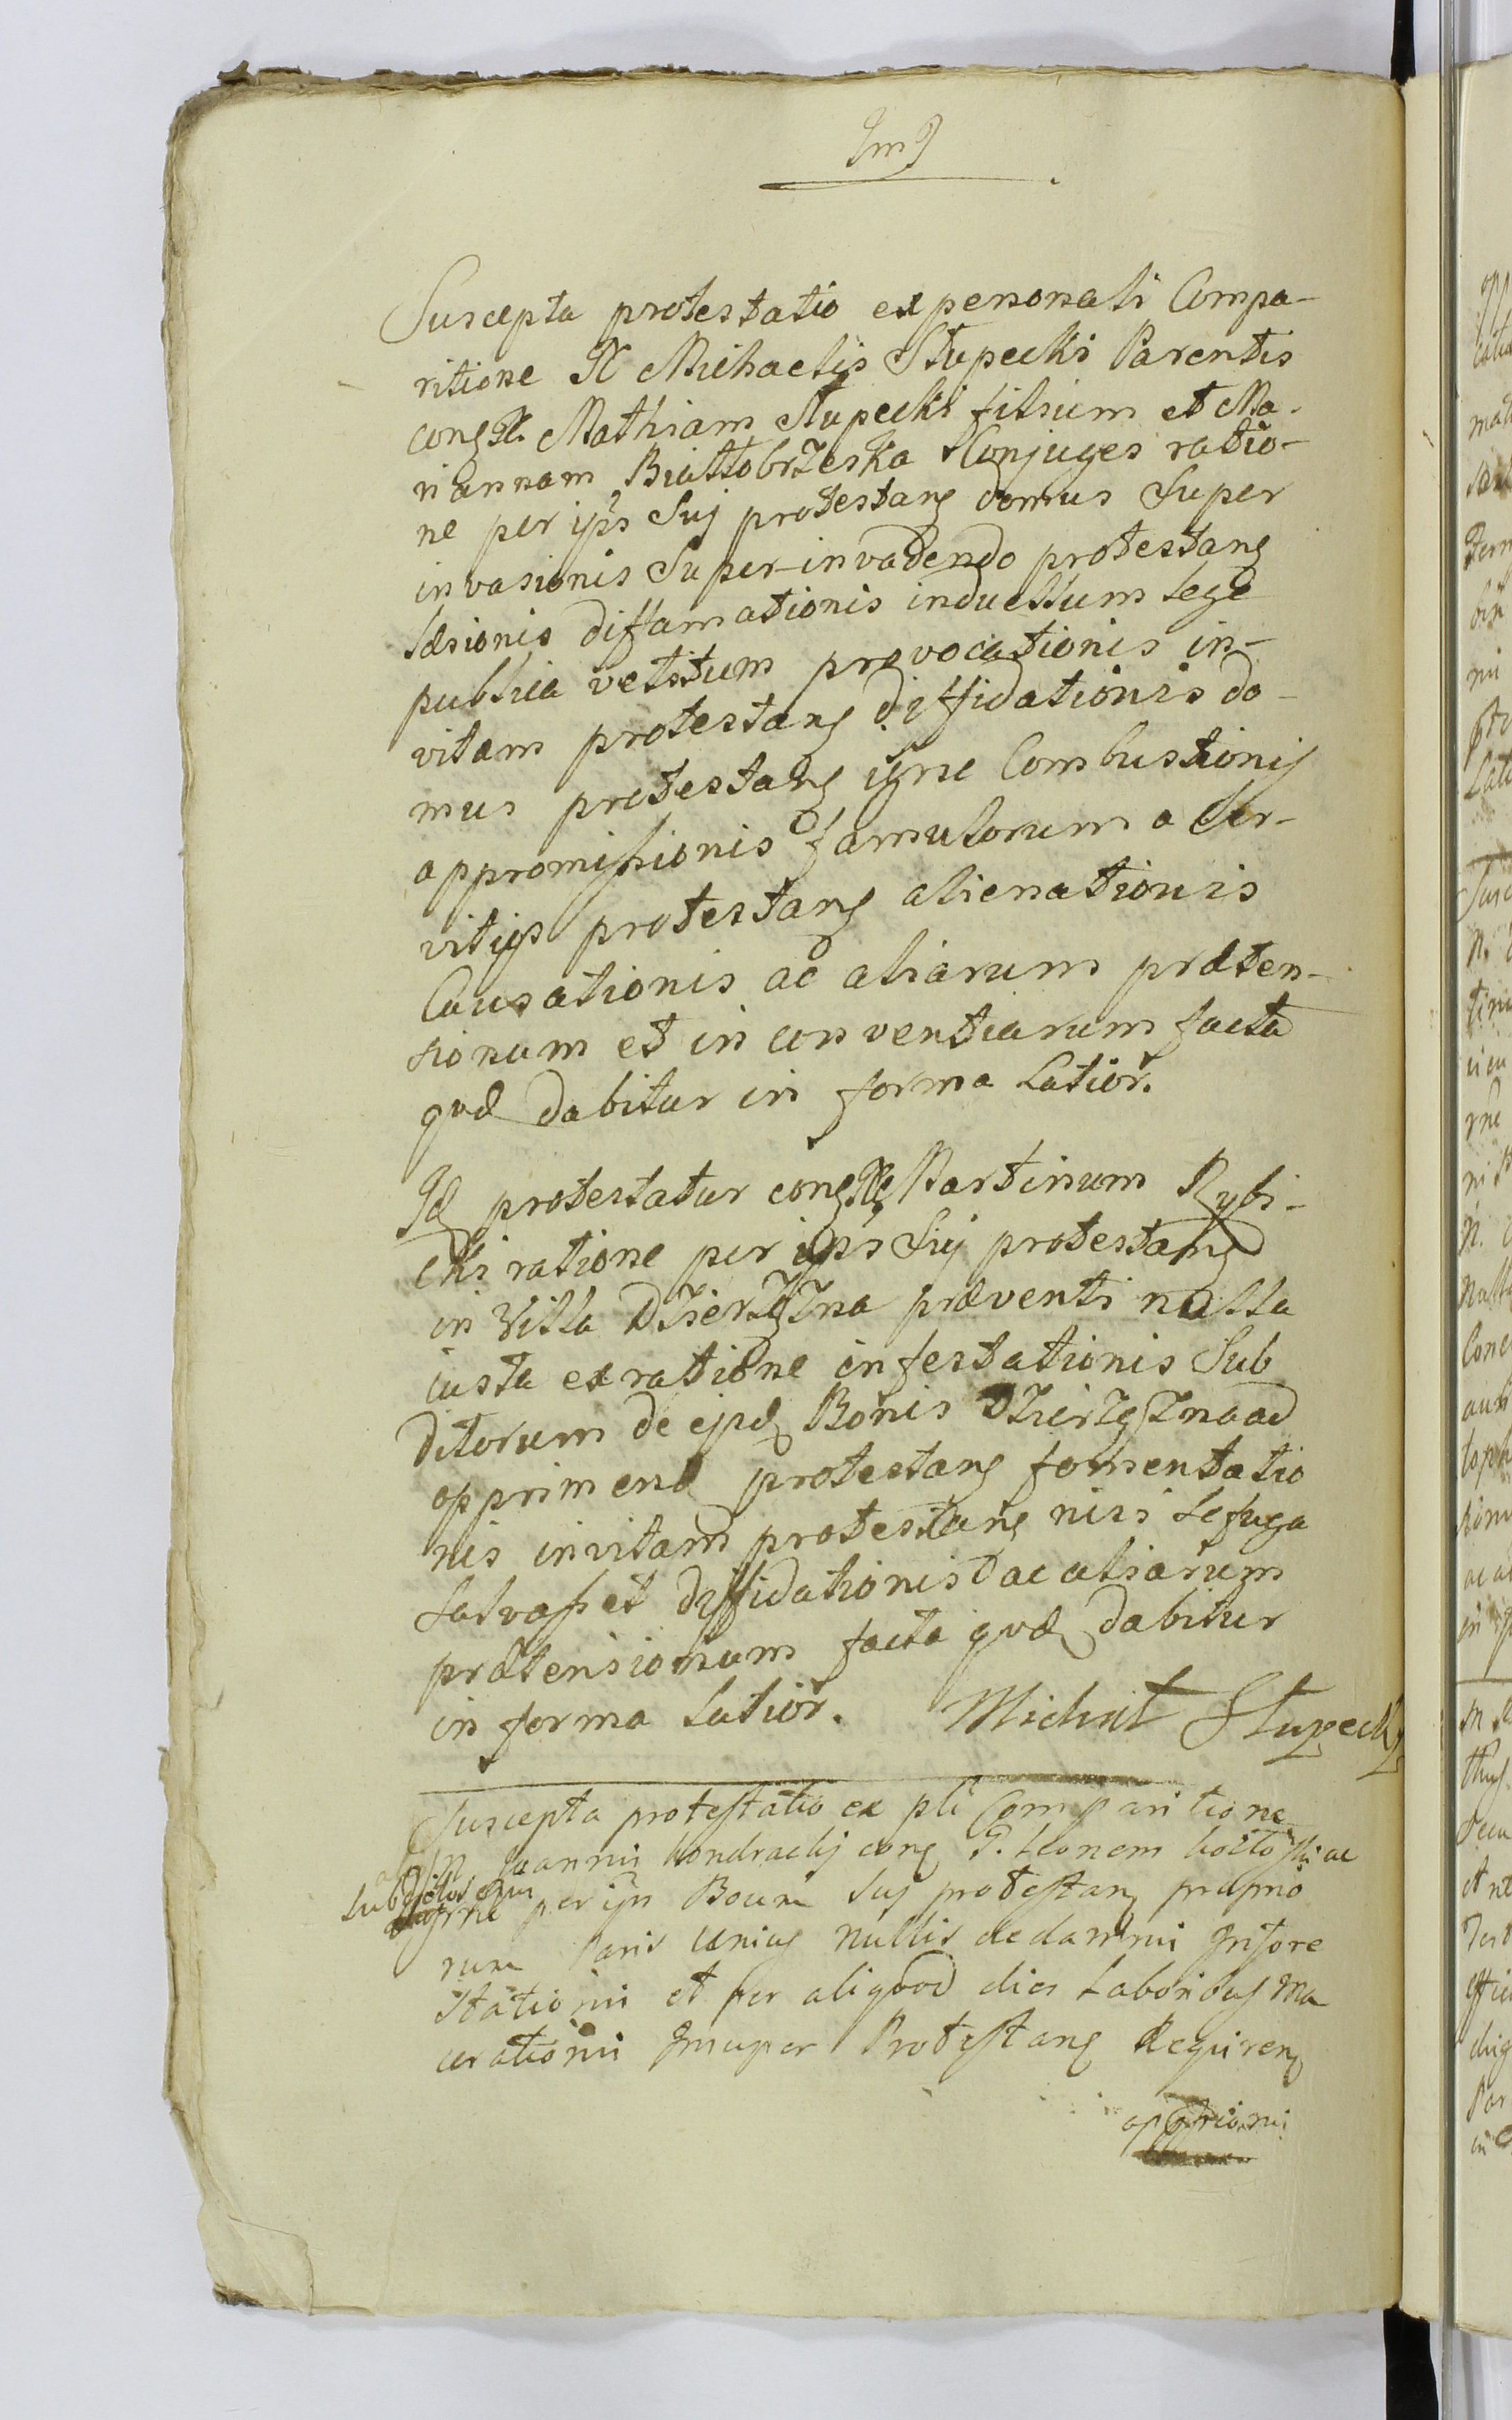 Suscepta protestatio ex personali Compa-
ritione N Michaelis Słupecki Parentis
cong N. Mathiam Słupecki filium et Ma-
riannam Białłobrzeska Conjuges ratio-
ne per ips Suj protestang domus Super
invasionis Super invadendo protestang
læsionis diffamationis in duellum lege
publica vetitum provocationis in-
vitam protestang diffidationis do-
mus protestang igne Combustionis
appromissionis famulorum a Ser-
vitijs protestang alienationis
Causationis ac aliarum præten-
sionum et in conventiarum facta
quæ dabitur in forma Latior.
Id protestatur cong N Martinum Rybi-
cki ratione per ips Suj protestang
in Villa Dzierzgzna præventi nulla
iusta ex ratione infestationis Sub
ditorum de ejsd Bonis Dzierzgzna ad
opprimend protestang fomentatio
nis in vitam protestang nisi se fuga
salvasset diffidationis ac aliarum
prætensionum facta quæ dabitur
in forma Latior. Michał Słupecki
Suscepta protestatio ex pli Comparitione
N. Joannis Kondracki cong G. Leonem ac
Subditos
per ips Boum Suj protestang proprio
rum Paris unius nullis de damni
stationis et per aliquod dies Laboribus Ma
cerationis Insuper Protestang Requireng